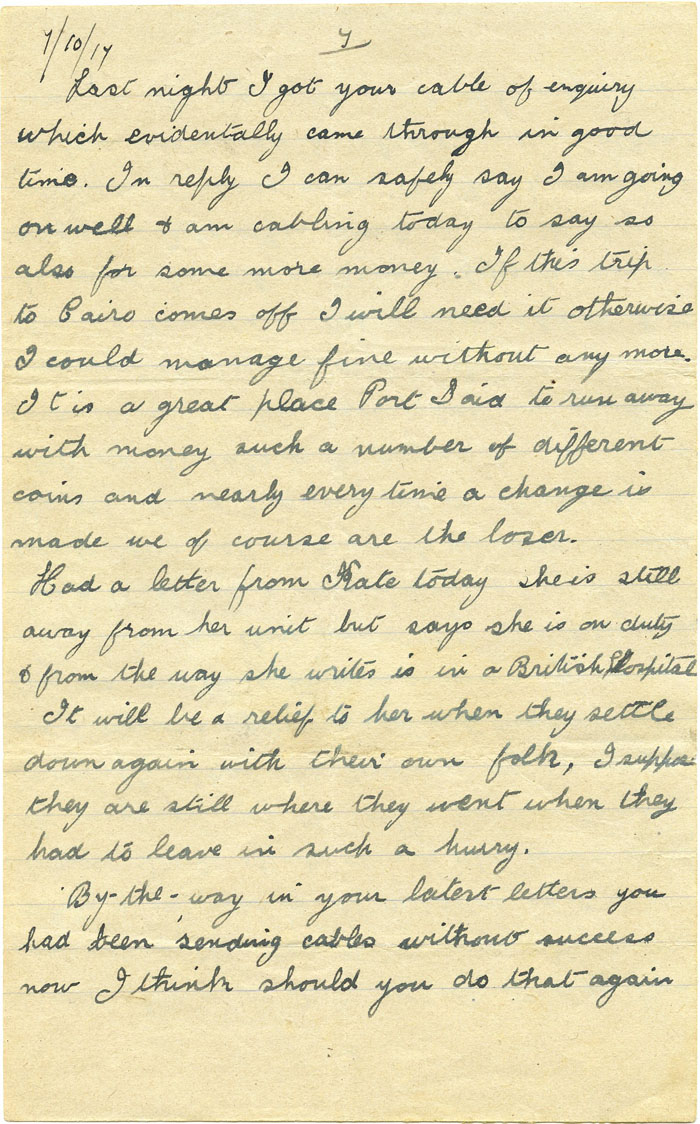 7/10/17
7
Last night I got your cable of enquiry
which evidentally came through in good
time. In reply I can safely say I am going
on well & am cabling today to say so
also for some more money. If this trip
to Cairo comes off I will need it otherwise
I could manage fine without any more.
It is a great place Port Said to run away
with money such a number of different
coins and nearly every time a change is
made we of course are the loser.
Had a letter from Kate today she is still
away from her unit but says she is on duty
& from the way she writes is in a British Hospital
It will be a relief to her when they settle
down again with their own folk, I suppose
they are still where they went when they
had to leave in such a hurry.
By-the-way in your latest letters you
had been sending cables without success
now I think should you do that again